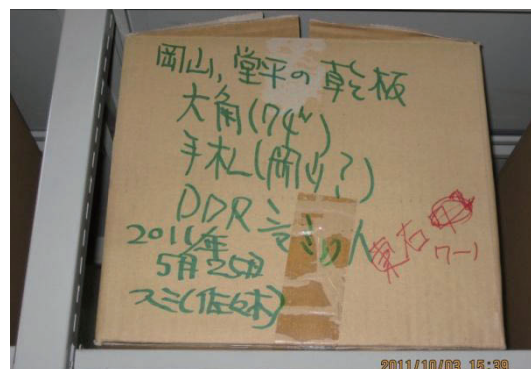 岡山,堂平の乾板
大角(74")
手札(岡山?)
DDR
2011年
5月25日
スミ(佐々木)
東右中
ワー1
2011/10/03 15:39